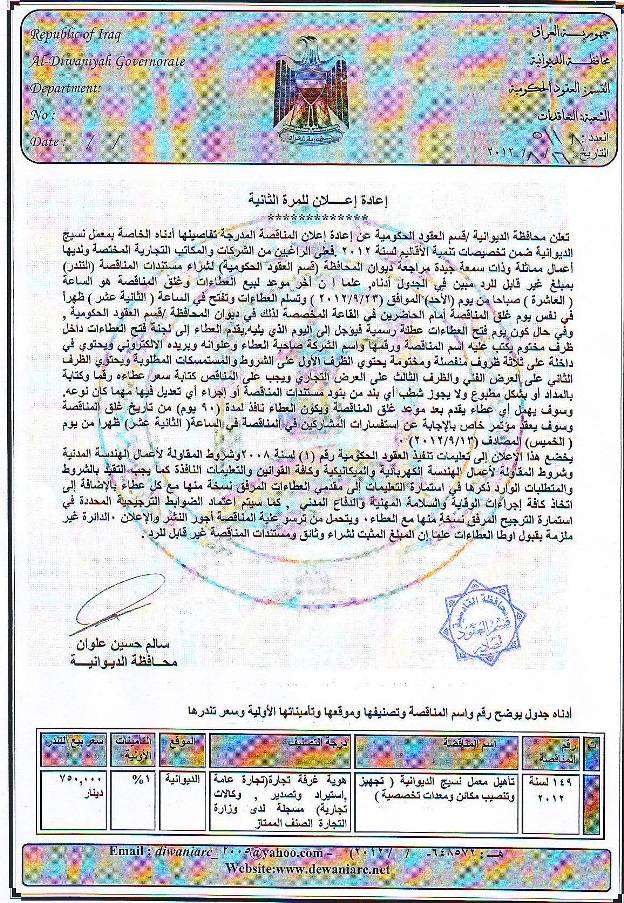 Republic of Iraq
Al-Diwaniyah Governorate
Department:
No :
Date : / /
جمهورية العراق
محافظة الديوانية
القسم: العقود الحكومية
الشعبة: التعاقدات
العدد:
التاريخ: / / ٢٠١٢
إعادة إعـــلان للمرة الثانية
*************
تعلن محافظة الديوانية /قسم العقود الحكومية عن إعادة إعلان المناقصة المدرجة تفاصيلها أدناه الخاصة بمعمل نسيج
الديوانية ضمن تخصيصات تنمية الأقاليم لسنة ٢٠١٢ .فعلى الراغبين من الشركات والمكاتب التجارية المختصة ولديها
أعمال مماثلة وذات سمعة جيدة مراجعة ديوان المحافظة (قسم العقود الحكومية) لشراء مستندات المناقصة (التندر)
بمبلغ غير قابل للرد مبين في الجدول أدناه. علما إن آخر موعد لبيع العطاءات وغلق المناقصة هو الساعة
( العاشرة ) صباحا من يوم (الأحد) الموافق (٢٠١٢/٩/٢٣ ) وتسلم العطاءات وتفتح في الساعة ( الثانية عشر ) ظهراً
في نفس يوم غلق المناقصة أمام الحاضرين في القاعة المخصصة لذلك في ديوان المحافظة /قسم العقود الحكومية ,
وفي حال كون يوم فتح العطاءات عطلة رسمية فيؤجل إلى اليوم الذي يليه.يقدم العطاء إلى لجنة فتح العطاءات داخل
ظرف مختوم كتب عليه اسم المناقصة ورقمها واسم الشركة صاحبة العطاء وعنوانه وبريده الالكتروني ويحتوي في
داخلة على ثلاثة ظروف منفصلة ومختومة يحتوي الظرف الأول على الشروط والمستمسكات المطلوبة ويحتوي الظرف
الثاني على العرض الفني والظرف الثالث على العرض التجاري ويجب على المناقص كتابة سعر عطاءه رقما وكتابة
بالمداد أو بشكل مطبوع ولا يجوز شطب أي بند من بنود مستندات المناقصة أو إجراء أي تعديل فيها مهما كان نوعه.
وسوف يهمل أي عطاء يقدم بعد موعد غلق المناقصة ويكون العطاء نافذ لمدة (٩٠ يوم) من تاريخ غلق المناقصة
وسوف يعقد مؤتمر خاص بالإجابة عن استفسارات المشاركين في المناقصة في الساعة( الثانية عشر) ظهرا من يوم
( الخميس) المصادف (٢٠١٢/٩/١٣) ٠
يخضع هذا الإعلان إلى تعليمات تنفيذ العقود الحكومية رقم (١) لسنة ٢٠٠٨وشروط المقاولة لأعمال الهندسة المدنية
وشروط المقاولة لأعمال الهندسة الكهربائية والميكانيكية وكافة القوانين والتعليمات النافذة كما يجب التقيد بالشروط
والمتطلبات الوارد ذكرها في استمارة التعليمات إلى مقدمي العطاءات المرفق نسخة منها مع كل عطاء بالإضافة إلى
اتخاذ كافة إجراءات الوقاية والسلامة المهنية والدفاع المدني , كما سيتم اعتماد الضوابط الترجيحية المحددة في
استمارة الترجيح المرفق نسخة منها مع العطاء٠ ويتحمل من ترسو علية المناقصة أجور النشر والإعلان ٠الدائرة غير
ملزمة بقبول اوطا العطاءات علما إن المبلغ المثبت لشراء وثائق ومستندات المناقصة غير قابل للرد .
سالم حسين علوان
محافظة الديوانيـة
محافظة القادسية
قسم العقود
صادر
أدناه جدول يوضح رقم واسم المناقصة وتصنيفها وموقعها وتأميناتها الأولية وسعر تندرها
ت رقم المناقصة اسم المناقصة درجة التصنيف الموقع التأمينات الأولية سعر بيع التندر
١٤٩ لسنة تأهيل معمل نسيج الديوانية ( تجهيز هوية غرفة تجارة(تجارة عامة الديوانية ١% ٧٥٠,٠٠٠
٢٠١٢ وتنصيب مكائن ومعدات تخصصية ) ,استيراد وتصدير , وكالات دينار
تجارية) مسجلة لدى وزارة
التجارة الصنف الممتاز
Email : diwaniarc_٢٠٠٥@yahoo.com – (٢٠١٢/ / -٦٤٨٥٧٢ هـ:
Website:www.dewaniarc.net